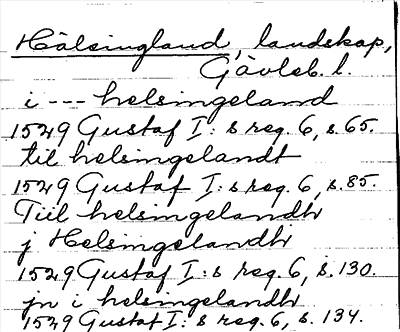 Hälsingland, landskap,
Gävleb. l.
i --- helsingeland
1529 Gustaf I:s reg. 6, s. 65.
til helsingelandt
1529 Gustaf I:s reg. 6, s. 85.
Tiil helsingelandh
j Helsingelandh
1529 Gustaf I:s reg. 6, s. 130.
jn i helsingelandh
1529 Gustaf I:s reg. 6, s. 134.